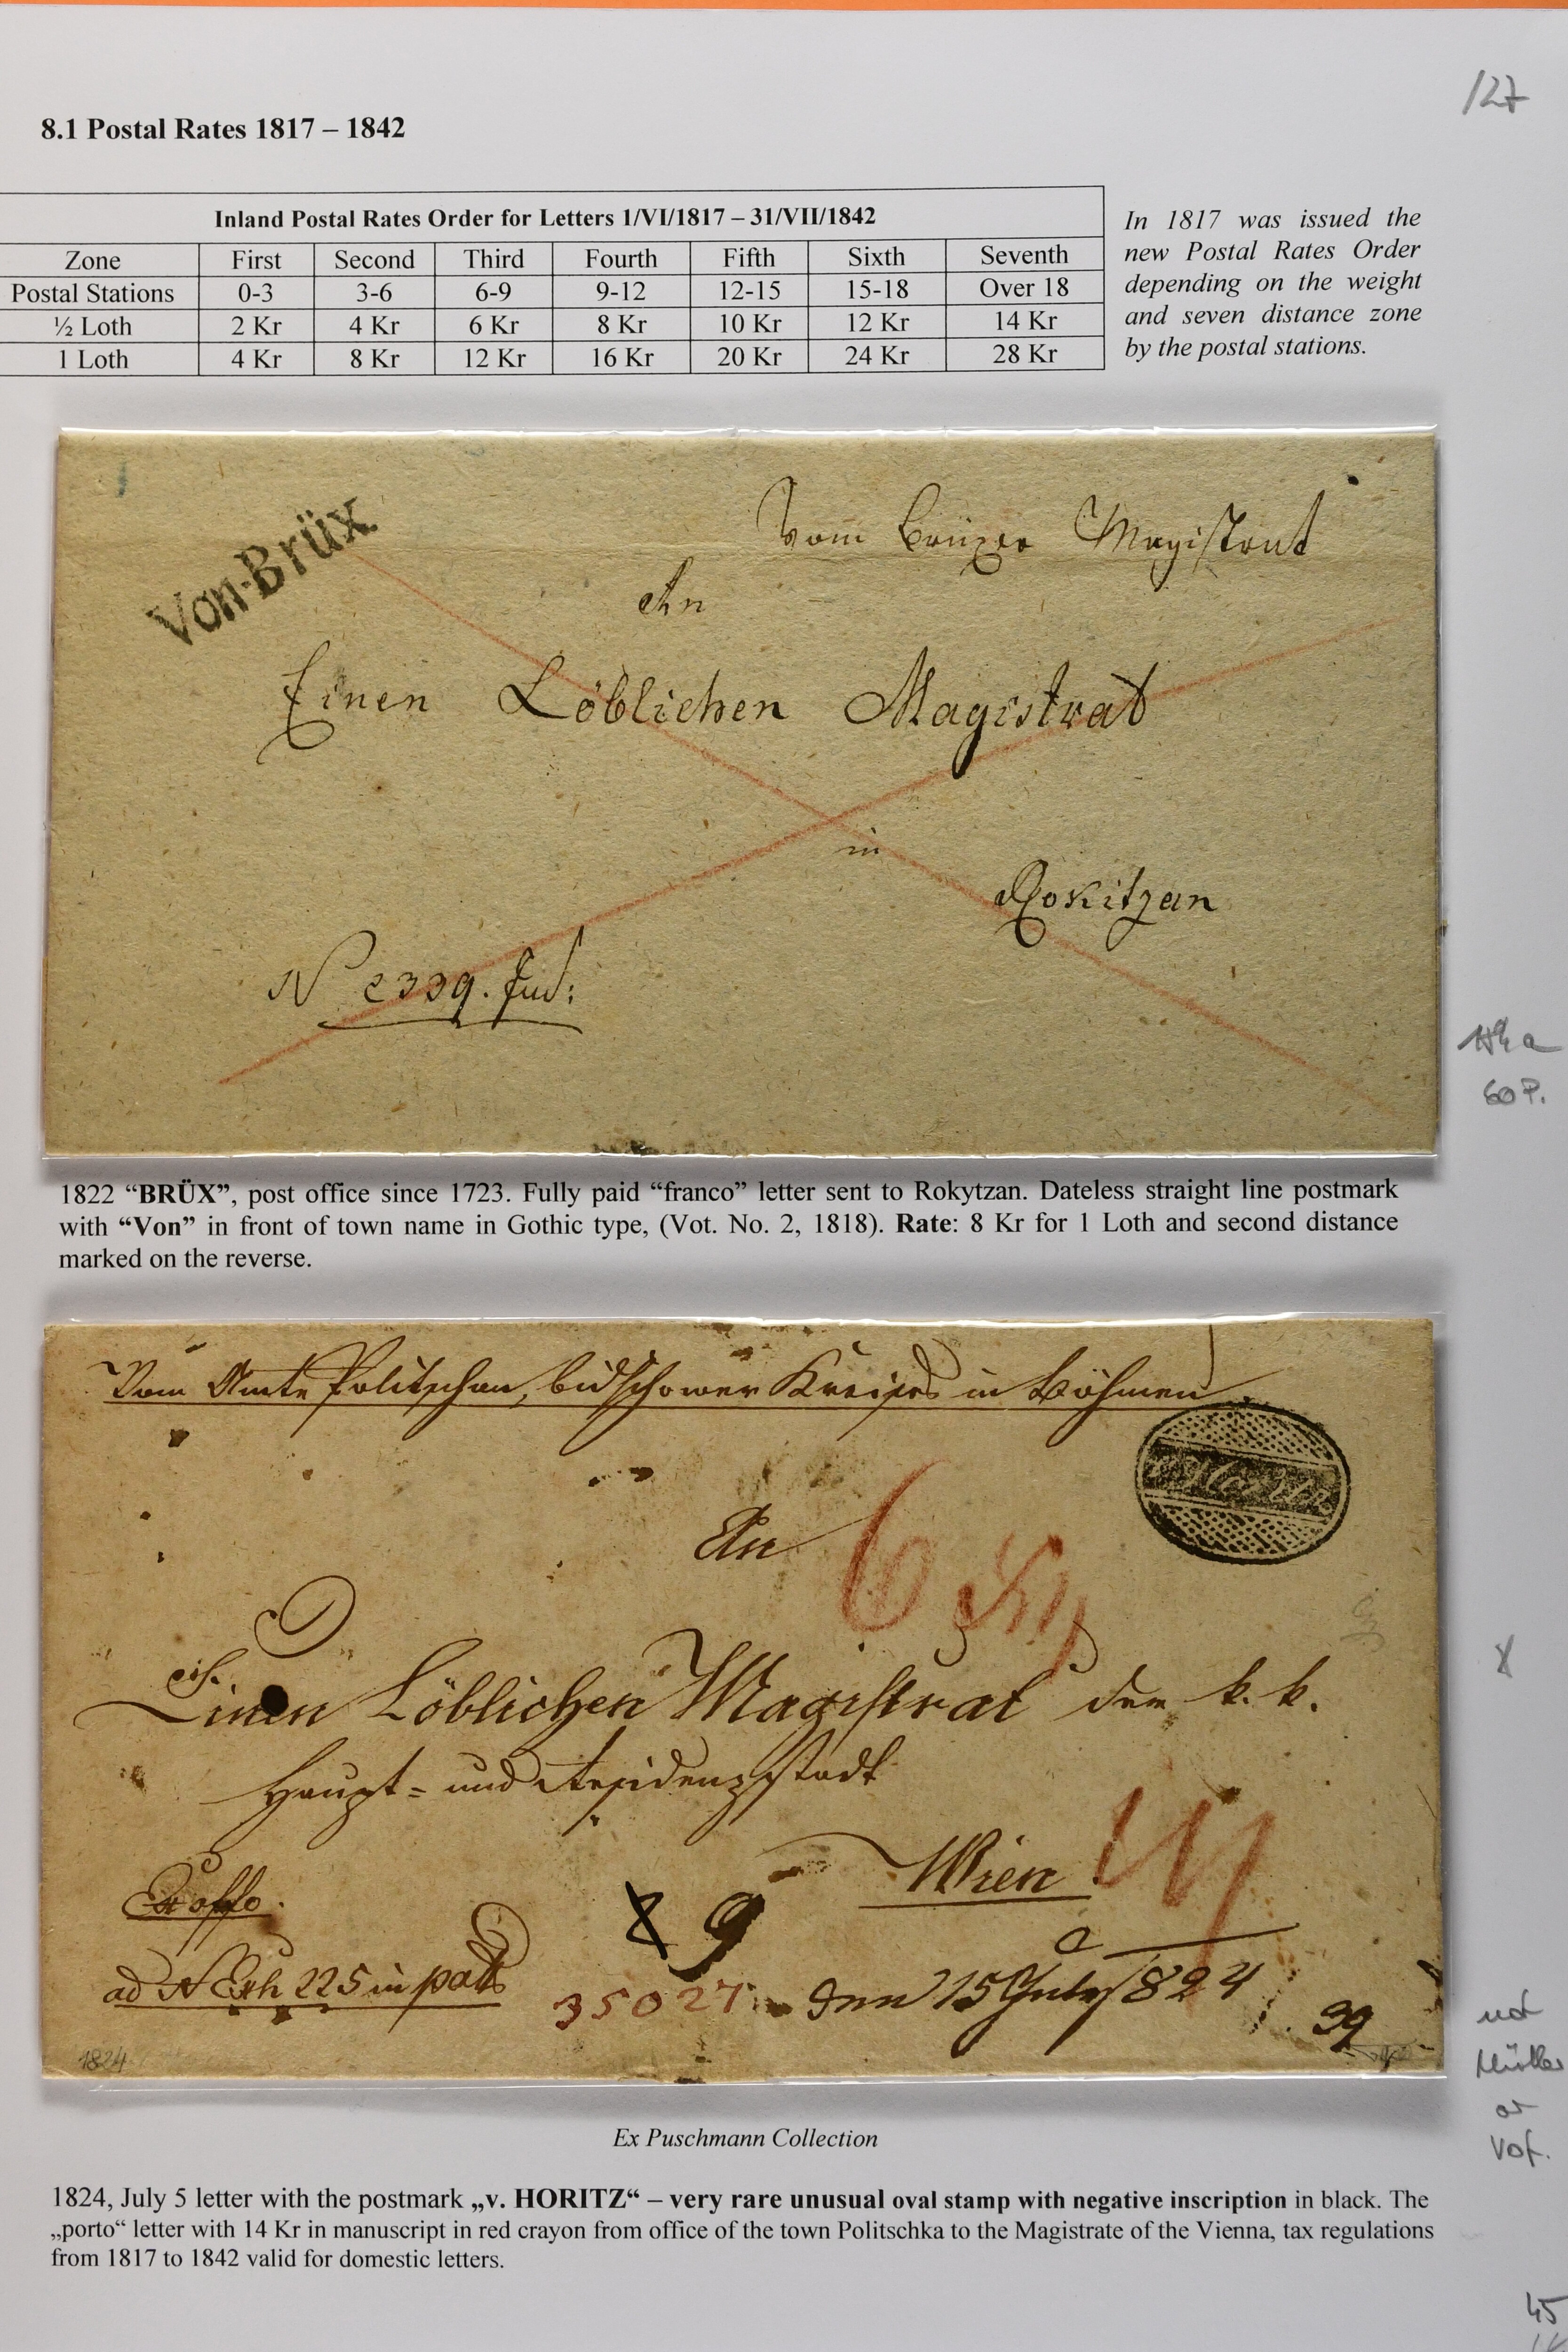 127
8.1 Postal Rates 1817 – 1842
Inland Postal Rates Order for Letters 1/VI/1817 – 31/VII/1842
Zone First Second Third Fourth Fifth Sixth Seventh
Postal Stations 0-3 3-6 6-9 9-12 12-15 15-18 Over 18
½ Loth 2 Kr 4 Kr 6 Kr 8 Kr 10 Kr 12 Kr 14 Kr
1 Loth 4 Kr 8 Kr 12 Kr 16 Kr 20 Kr 24 Kr 28 Kr
In 1817 was issued the
new Postal Rates Order
depending on the weight
and seven distance zone
by the postal stations.
Von Brüx.
Vom Brüxer Magistrat
An
Einen Löblichen Magistrat
in
Rokitzan
N 2339. Jud:
60 P.
1822 “BRÜX”, post office since 1723. Fully paid “franco” letter sent to Rokytzan. Dateless straight line postmark
with “Von” in front of town name in Gothic type, (Vot. No. 2, 1818). Rate: 8 Kr for 1 Loth and second distance
marked on the reverse.
Vom Amte Politschan, bidschower Kreises in Böhmen
An
6
Einen Löblichen Magistrat der k. k.
Haupt= und Residenzstadt
Wien
Ex offo.
9
ad N Exh 225 in
35027 den 15 July 824
39
1824
not
Müller
or
Vot.
Ex Puschmann Collection
1824, July 5 letter with the postmark „v. HORITZ“ – very rare unusual oval stamp with negative inscription in black. The
„porto“ letter with 14 Kr in manuscript in red crayon from office of the town Politschka to the Magistrate of the Vienna, tax regulations
from 1817 to 1842 valid for domestic letters.
45